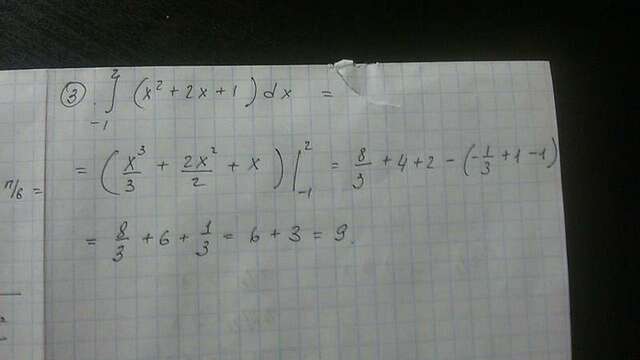 ③ ∫₋₁² (x² + 2x + 1) dx =
= (x³/3 + 2x²/2 + x) |₋₁² = 8/3 + 4 + 2 - (-1/3 + 1 - 1)
π/6 =
= 8/3 + 6 + 1/3 = 6 + 3 = 9.